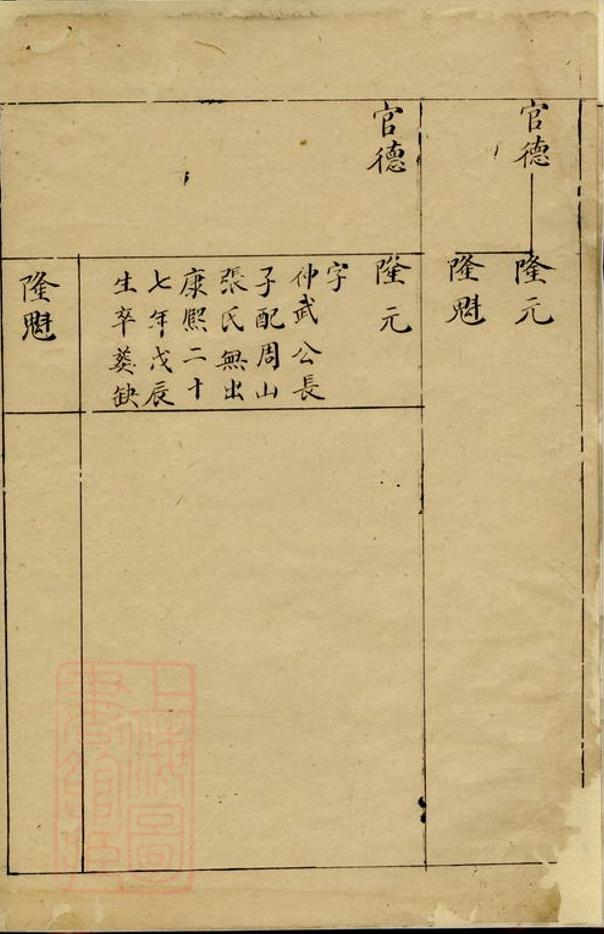 官德
隆元
隆魁
官德
隆元
字
仲武公長
子配周山
張氏無出
康熙二十
七年戊辰
生卒葬缺
隆魁
上海圖書館藏